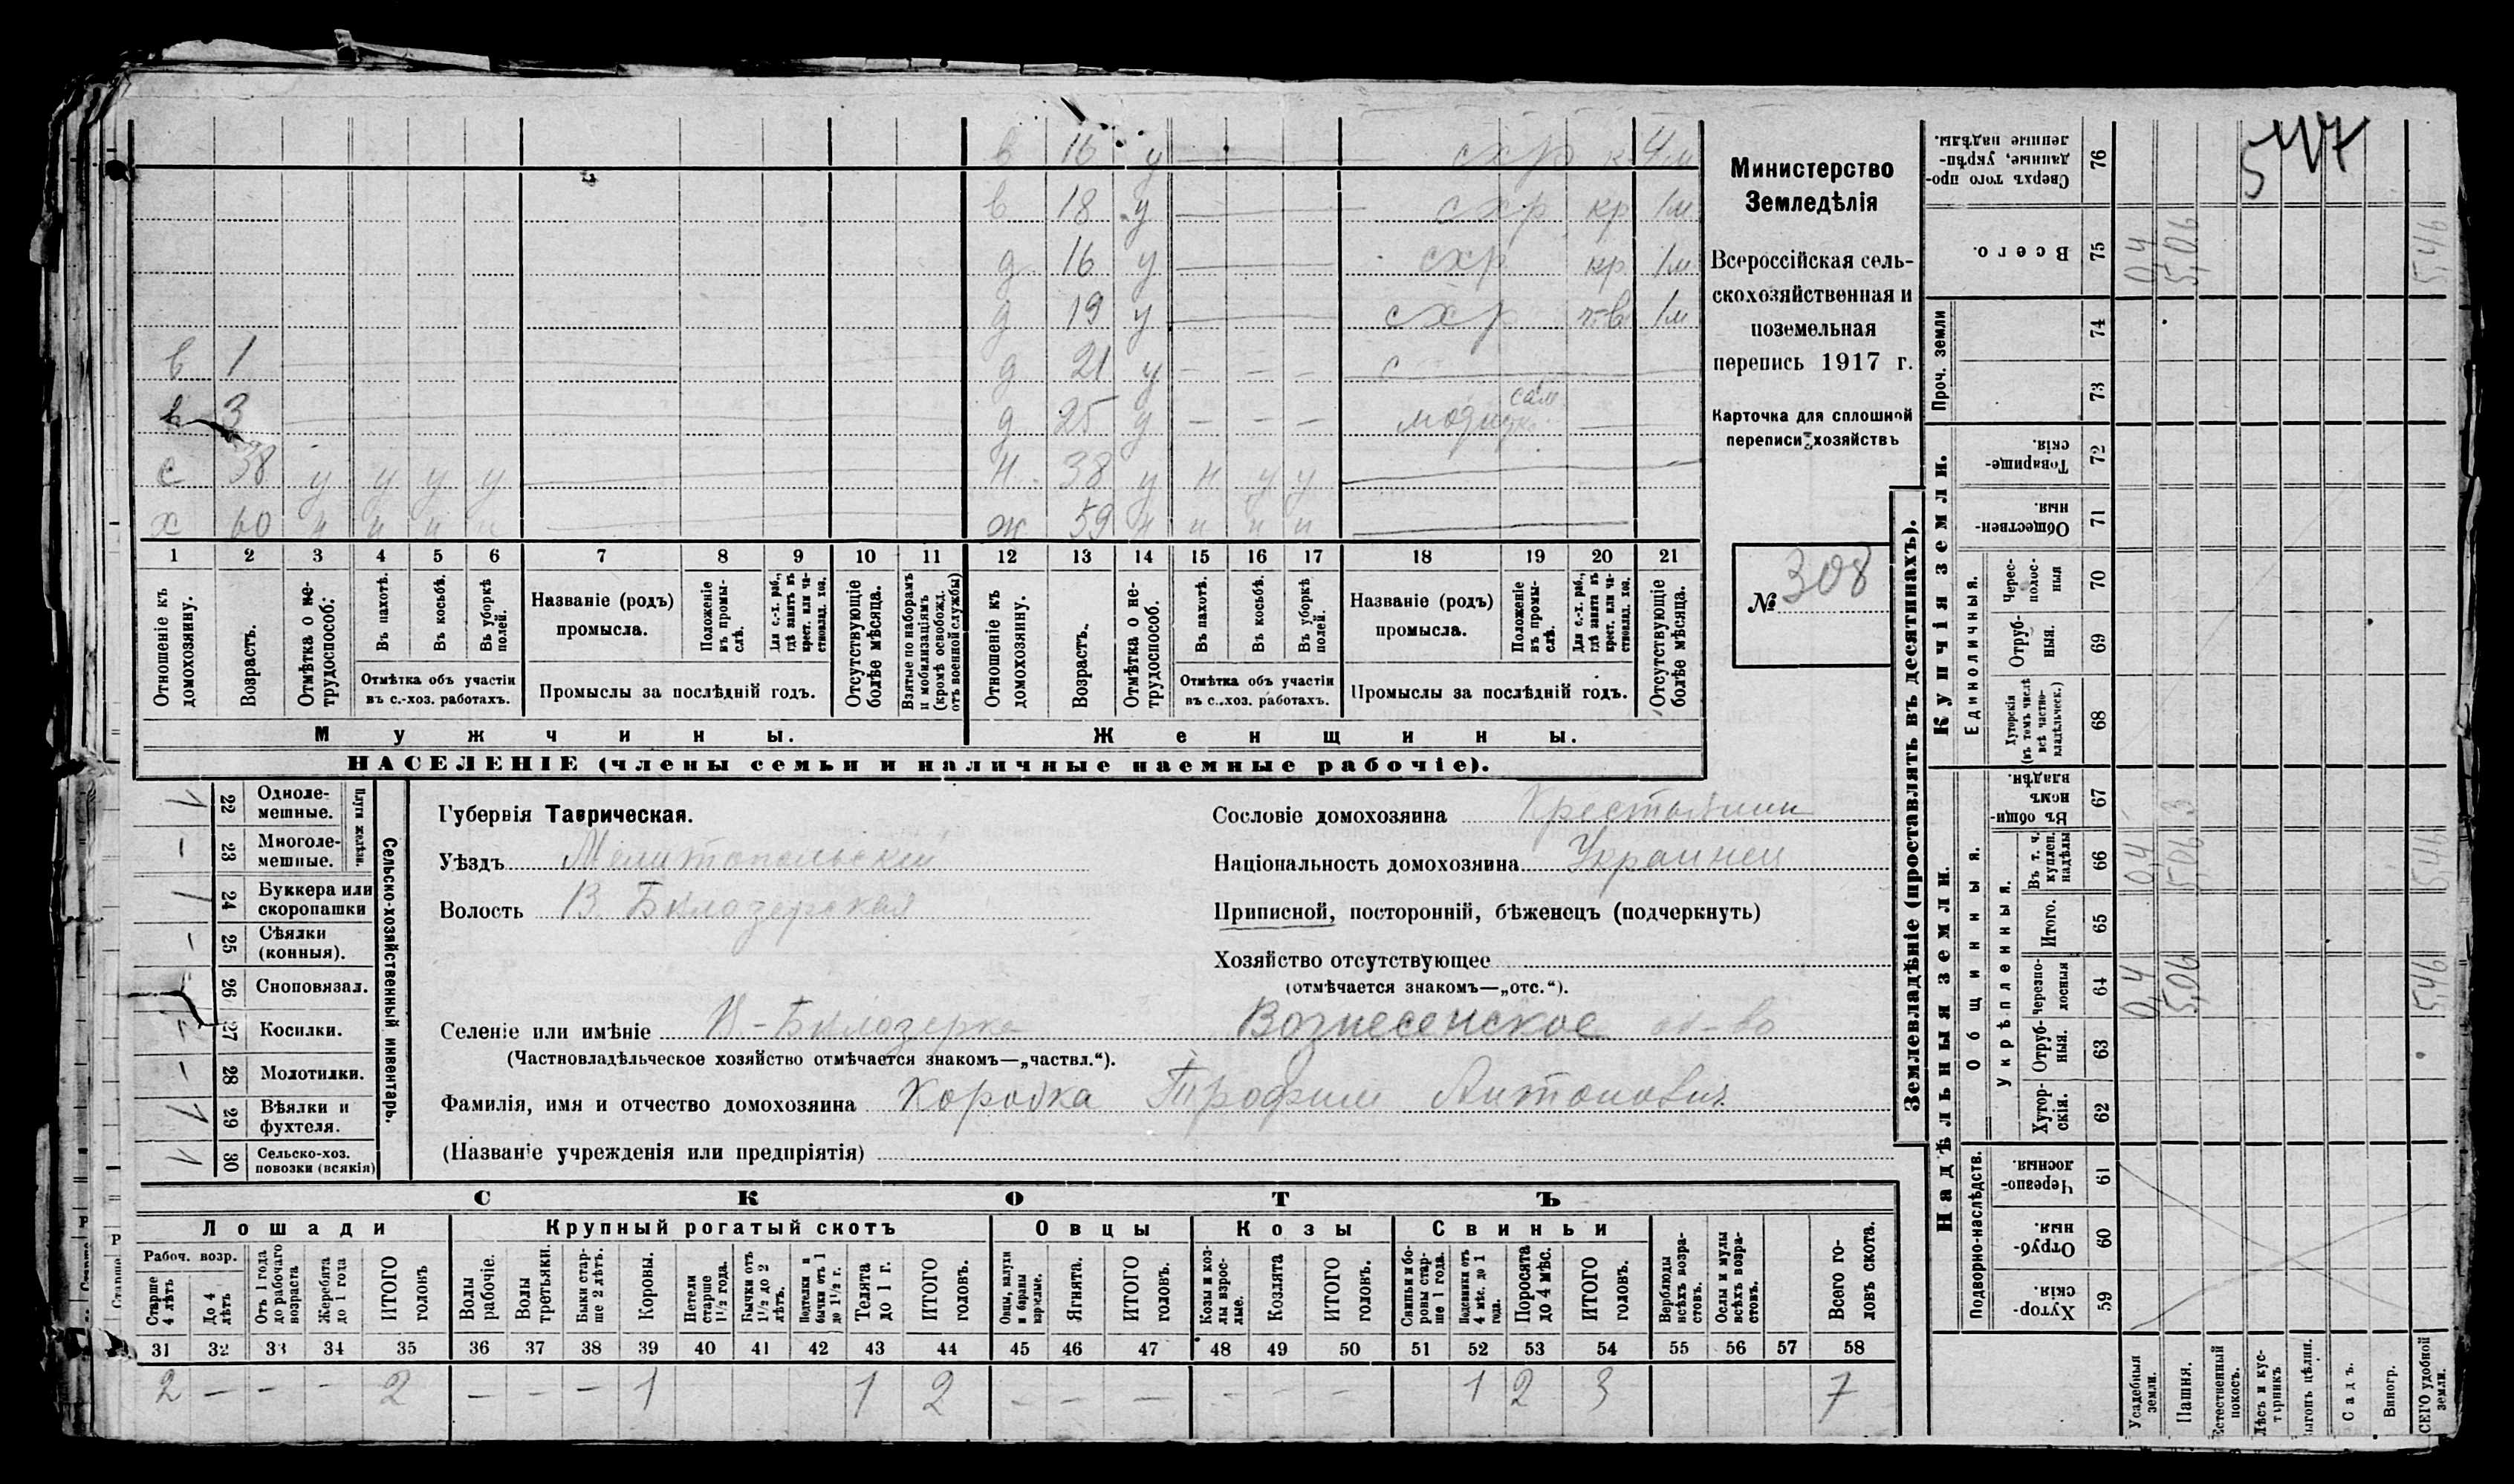 в 16 у схр к 4м
в 18 у схр кр 1м
д 16 у схр кр 1м
д 19 у схр 1м
в 1 д 21 у — — — с
в 3 д 25 у — — — сам
с 38 у у у у н 38 у н у у
х 60 н н н н ж 59 н н н н
1 2 3 4 5 6 7 8 9 10 11 12 13 14 15 16 17 18 19 20 21
Отношеніе къ домохозяину.
Возрастъ.
Отмѣтка о не-трудоспособ.
Въ пахотѣ.
Въ косьбѣ.
Въ уборкѣ полей.
Отмѣтка объ участіи въ с.-хоз. работахъ.
Названіе (родъ) промысла.
Положеніе въ промы-слѣ.
Для с.-х. раб., гдѣ занятъ въ крест. или ча-стновлад. хоз.
Промыслы за послѣдній годъ.
Отсутствующіе болѣе мѣсяца.
Взятые по наборамъ и мобилизаціямъ (кромѣ освобожд. отъ военной службы)
Отношеніе къ домохозяину.
Возрастъ.
Отмѣтка о не-трудоспособ.
Въ пахотѣ.
Въ косьбѣ.
Въ уборкѣ полей.
Отмѣтка объ участіи въ с.-хоз. работахъ.
Названіе (родъ) промысла.
Положеніе въ промы-слѣ.
Для с.-х. раб., гдѣ занята въ крест. или ча-стновлад. хоз.
Промыслы за послѣдній годъ.
Отсутствующіе болѣе мѣсяца.
Мужчины. Женщины.
НАСЕЛЕНІЕ (члены семьи и наличные наемные рабочіе).
Министерство
Земледѣлія
Всероссійская сель-
скохозяйственная и
поземельная
перепись 1917 г.
Карточка для сплошной
переписи хозяйствъ
№ 308
Сельско-хозяйственный инвентарь.
Плуги желѣзн.
22 Однолемешные.
23 Многолемешные.
24 Буккера или скоропашки
25 Сѣялки (конныя).
26 Сноповязал.
27 Косилки.
28 Молотилки.
29 Вѣялки и фухтеля.
30 Сельско-хоз. повозки (всякія)
Губернія Таврическая.
Уѣздъ Мелитопольскій
Волость В. Билозерская
Селеніе или имѣніе В.-Билозерка Вознесенское об-во
(Частновладѣльческое хозяйство отмѣчается знакомъ—„частвл.“).
Фамилія, имя и отчество домохозяина Коробка Трофим Антонович
(Названіе учрежденія или предпріятія)
Сословіе домохозяина Крестьянин
Національность домохозяина Украинец
Приписной, посторонній, бѣженецъ (подчеркнуть)
Хозяйство отсутствующее
(отмѣчается знакомъ—„отс.“).
СКОТЪ
Лошади Крупный рогатый скотъ Овцы Козы Свиньи
Рабоч. возр.
Старше 4 лѣтъ
До 4 лѣтъ
Отъ 1 года до рабочаго возраста
Жеребята до 1 года
ИТОГО головъ
Волы рабочіе.
Волы третьяки.
Быки стар-ше 2 лѣтъ.
Коровы.
Нетели старше 1½ года.
Бычки отъ 1½ до 2 лѣтъ.
Подтелки и бычки отъ 1 до 1½ г.
Телята до 1 г.
ИТОГО головъ.
Овцы, валухи и бараны взрослые.
Ягнята.
ИТОГО головъ.
Козы и коз-лы взрос-лые.
Козлята
ИТОГО головъ.
Свиньи и бо-ровы стар-ше 1 года.
Подсвинки отъ 4 мѣс. до 1 года.
Поросята до 4 мѣс.
ИТОГО головъ.
Верблюды всѣхъ возра-стовъ.
Ослы и мулы всѣхъ возра-стовъ.
Всего го-ловъ скота.
31 32 33 34 35 36 37 38 39 40 41 42 43 44 45 46 47 48 49 50 51 52 53 54 55 56 57 58
2 — — — 2 — — — 1 1 2 — — — — — — 1 2 3 7
Землевладѣніе (проставлять въ десятинахъ).
Купчія земли.
Надѣльныя земли.
Сверхъ того про-данные, укрѣп-ленные надѣлы. 76
Всего. 75 0,4 5,06 5,46
Проч. земли
74
73
Товарище-скія. 72
Обществен-ныя. 71
Единоличныя.
Черес-полос-ныя 70
Отруб-ныя. 69
Хуторскія (въ томъ числѣ всѣ частно-владѣльческ.) 68
Общинныя.
Въ общи-номъ владѣн. 67
Укрѣпленныя.
Въ т. ч. куплен. надѣлы 66 0,4 5,06 5,46
Итого. 65
Черезпо-лосныя 64 0,4 5,06 5,46
Отруб-ныя. 63
Хутор-скія. 62
Подворно-наслѣдств.
Черезпо-лосныя. 61
Отруб-ныя. 60
Хутор-скія. 59
Усадебныя земли.
Пашня.
Естественный покосъ.
Лѣсъ и кус-тарникъ
Садъ.
Виногр.
547